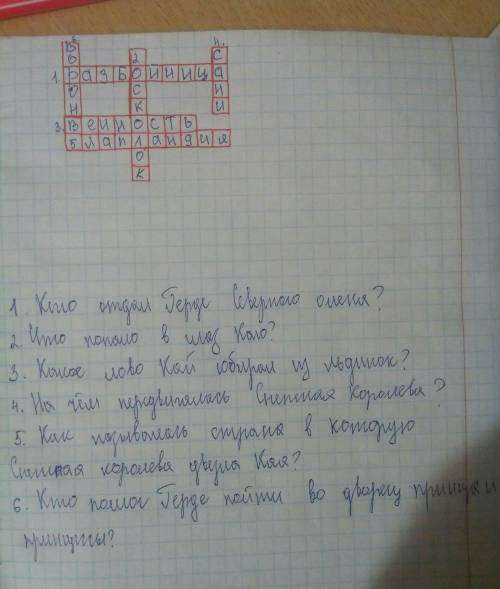 6 4.
В 2 С
О
1. РАЗБОЙНИЦА
О С Н
Н К И
3. ВЕЧНОСТЬ
5 ЛАПЛАНДИЯ
О
К
1. Кто отдал Герде Северного оленя?
2. Что попало в глаз Каю?
3. Какое слово Кай собирал из льдинок?
4. На чём передвигалась Снежная Королева?
5. Как называлась страна в которую
Снежная королева увезла Кая?
6. Кто помог Герде пойти во дворец принца и
принцессы?